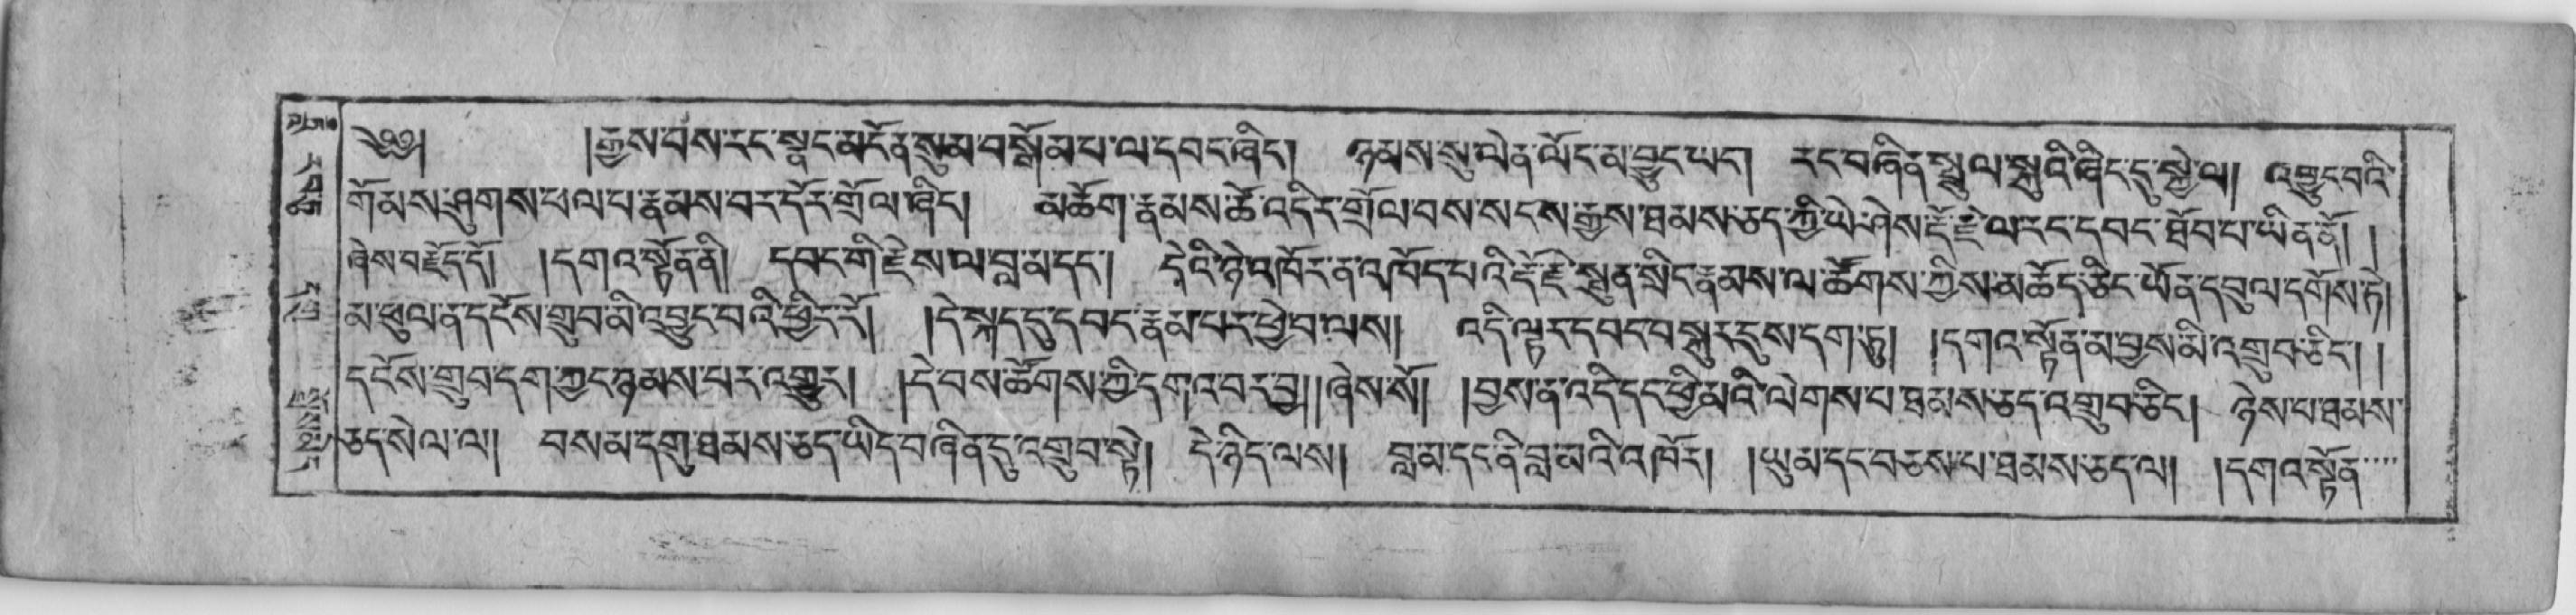 ༄༅། །རྒྱས་པས་རང་སྣང་མངོན་སུམ་བསྒོམ་པ་ལ་དབང་ཞིང༌། ཉམས་སུ་ལེན་ལོང་མ་བྱུང་ཡང༌། རང་བཞིན་སྤྲུལ་སྐུའི་ཞིང་དུ་སྐྱེ་ལ། འབྱུང་བའི་
གོམས་ཤུགས་ཕལ་པ་རྣམས་བར་དོར་གྲོལ་ཞིང༌། མཆོག་རྣམས་ཚེ་འདིར་གྲོལ་བས་སངས་རྒྱས་ཐམས་ཅད་ཀྱི་ཡེ་ཤེས་རྡོ་རྗེ་ལ་རང་དབང་ཐོབ་པ་ཡིན་ནོ། །
ཞེས་བརྗོད་དོ། །དགའ་སྟོན་ནི། དབང་གི་རྗེས་ལ་བླ་མ་དང༌། དེའི་ཉེ་འཁོར་ན་འཁོད་པའི་རྡོ་རྗེ་སྤུན་སྲིང་རྣམས་ལ་ཚོགས་ཀྱིས་མཆོད་ཅིང་ཡོན་དབུལ་དགོས་ཏེ།
མ་ཕུལ་ན་དངོས་གྲུབ་མི་འབྱུང་བའི་ཕྱིར་རོ། །དེ་སྐད་དུ་དབང་རྣམ་པར་ཕྱེ་བ་ལས། འདི་ལྟར་དབང་བསྐུར་དུས་དག་ཏུ། །དགའ་སྟོན་མ་བྱས་མི་འགྲུབ་ཅིང༌། །
དངོས་གྲུབ་དག་ཀྱང་ཉམས་པར་འགྱུར། །དེ་བས་ཚོགས་ཀྱི་དགའ་བར་བྱ། །ཞེས་སོ། །བྱས་ན་འདི་དང་ཕྱི་མའི་ལེགས་པ་ཐམས་ཅད་འགྲུབ་ཅིང༌། ཉེས་པ་ཐམས་
ཅད་སེལ་ལ། བསམ་དགུ་ཐམས་ཅད་ཡིད་བཞིན་དུ་འགྲུབ་སྟེ། དེ་ཉིད་ལས། བླ་མ་དང་ནི་བླ་མའི་འཁོར། །ཡུམ་དང་བཅས་པ་ཐམས་ཅད་ལ། །དགའ་སྟོན་